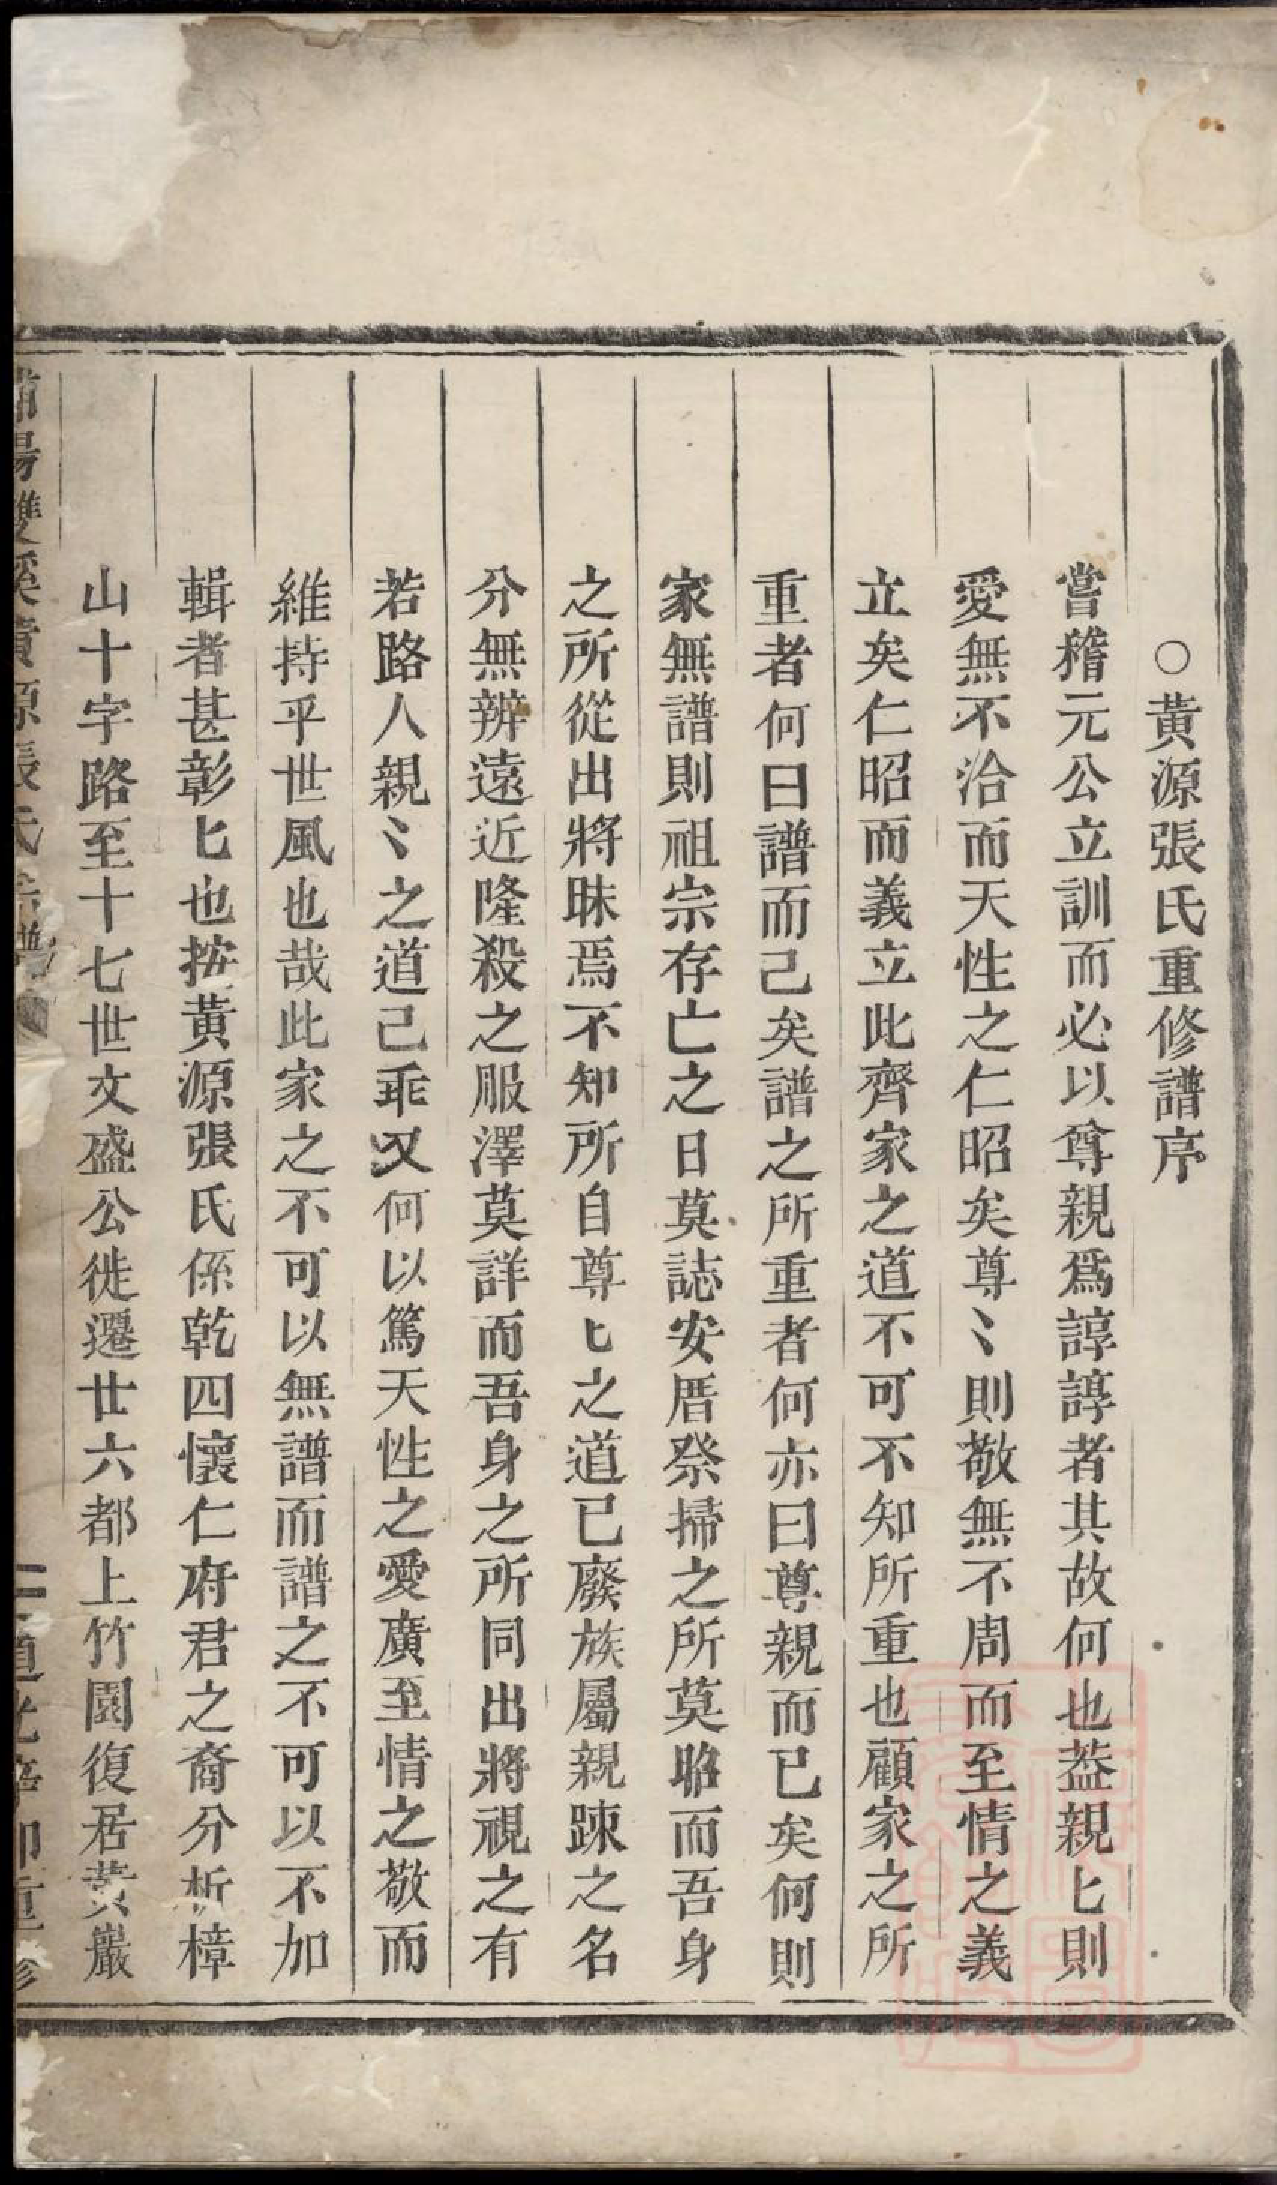 ○黃源張氏重修譜序
嘗稽元公立訓而必以尊親爲諄諄者其故何也葢親匕則
愛無不洽而天性之仁昭矣尊〻則敬無不周而至情之義
立矣仁昭而義立此齊家之道不可不知所重也顧家之所
重者何曰譜而己矣譜之所重者何亦曰尊親而已矣何則
家無譜則祖宗存亡之日莫誌安厝祭掃之所莫昭而吾身
之所從出將昧焉不知所自尊匕之道已廢族屬親踈之名
分無辨遠近隆殺之服澤莫詳而吾身之所同出將視之有
若路人親〻之道己乖又何以篤天性之愛廣至情之敬而
維持乎世風也哉此家之不可以無譜而譜之不可以不加
輯者甚彰匕也按黃源張氏係乾四懷仁府君之裔分析樟
山十字路至十七世文盛公徙遷廿六都上竹園復居黃巖
陽雙溪黃源張氏宗譜
二 道光辛卯重修